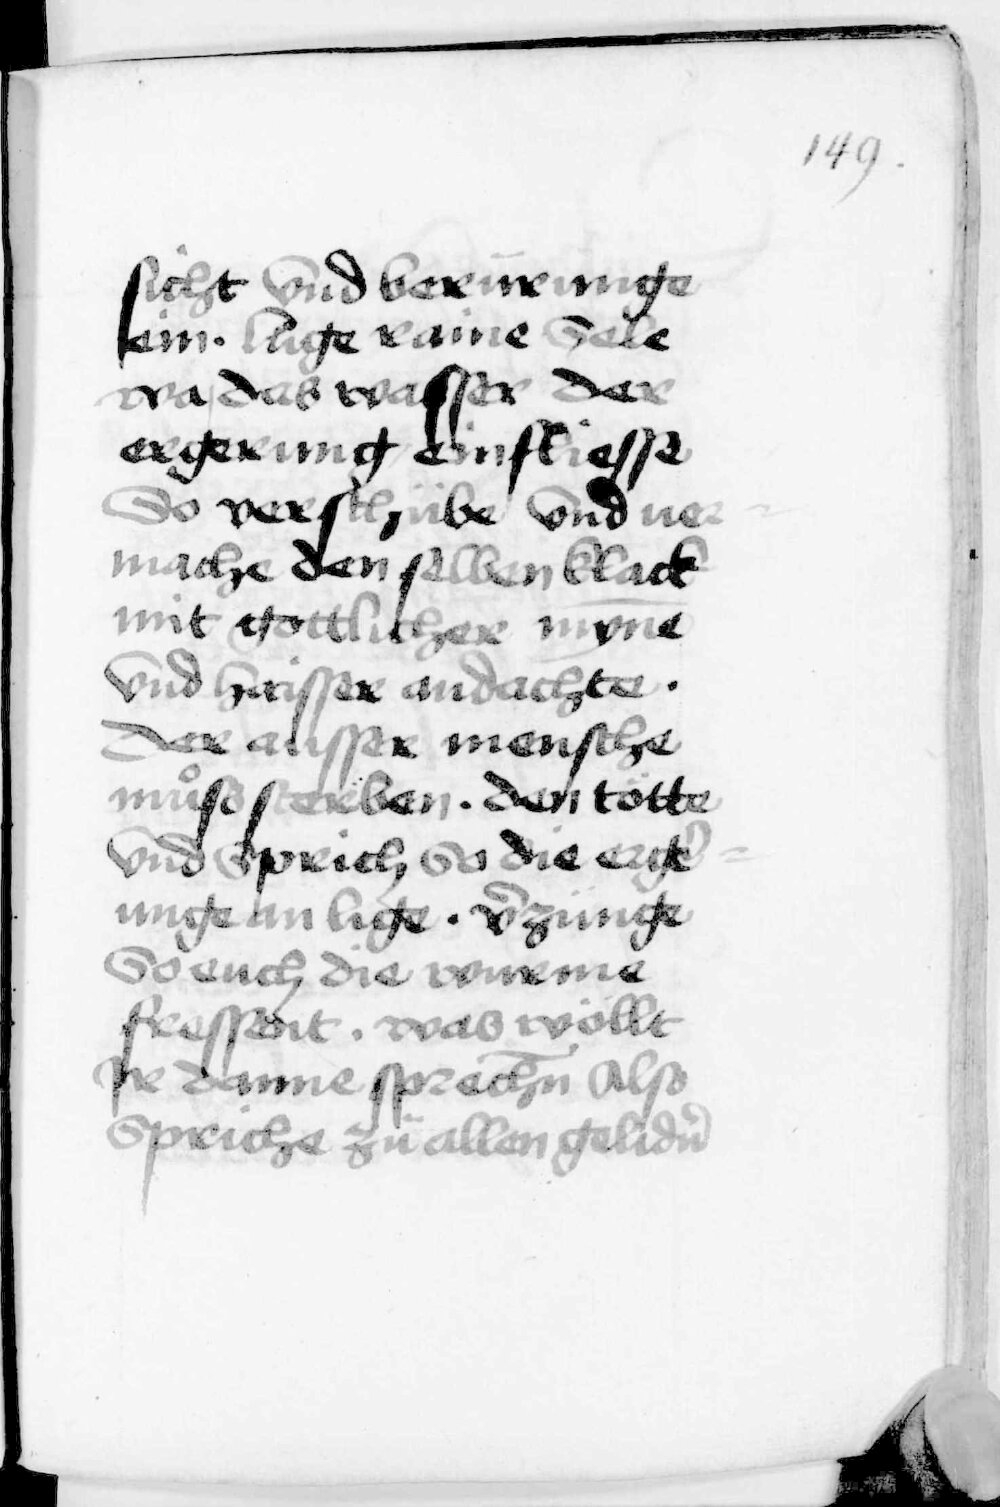 149.
sicht vnd berürunge
ein. luge raine Sele
wa das wasser der
ergerung einfliesse
So verschübe vnd ver=
mache den selben klack
mit gottlicher myne
vnd haisser andachte.
Der ausser mensche
můss sterben. den tötte
vnd sprich So die erg̃=
unge an lige. v̾zünge
So euch die wurme
fressent. was wöllt
Ir danne sprechñ Also
Spriche zü allen gelidñ